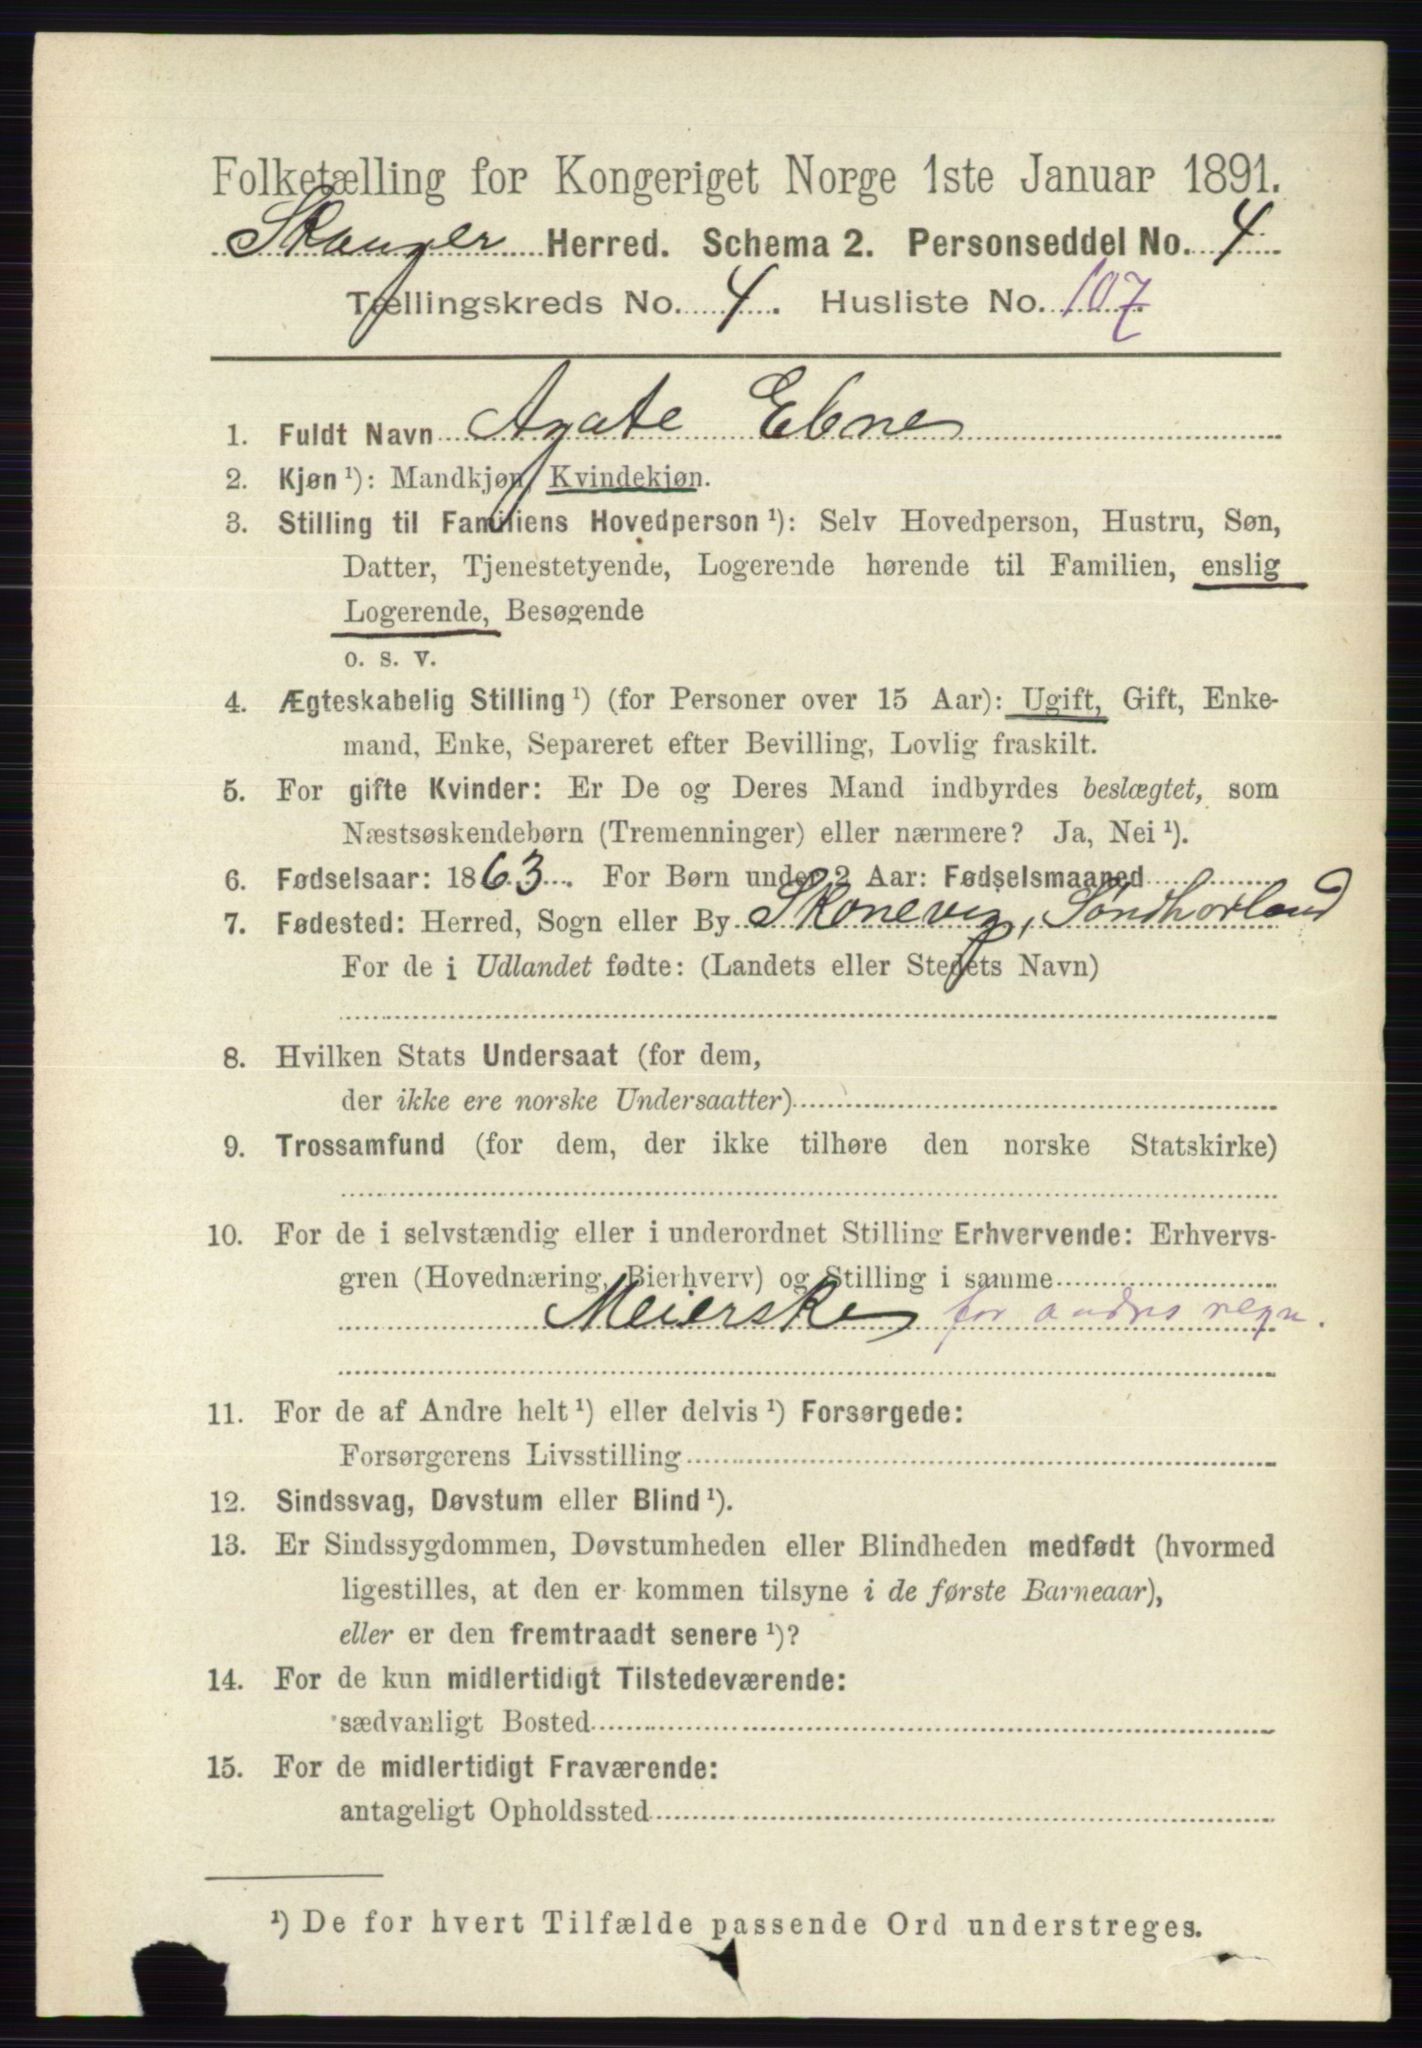 Folketælling for Kongeriget Norge 1ste Januar 1891.
Skauger Herred. Schema 2. Personseddel No. 4
Tællingskreds No. 4. Husliste No. 107
1. Fuldt Navn Agate Ebne
2. Kjøn ¹): Mandkjøn, Kvindekjøn.
3. Stilling til Familiens Hovedperson ¹): Selv Hovedperson, Hustru, Søn,
Datter, Tjenestetyende, Logerende hørende til Familien, enslig
Logerende, Besøgende
o. s. v.
4. Ægteskabelig Stilling ¹) (for Personer over 15 Aar): Ugift, Gift, Enke-
mand, Enke, Separeret efter Bevilling, Lovlig fraskilt.
5. For gifte Kvinder: Er De og Deres Mand indbyrdes beslægtet, som
Næstsøskendebørn (Tremenninger) eller nærmere? Ja, Nei ¹).
6. Fødselsaar: 1863. For Børn under 2 Aar: Fødselsmaaned
7. Fødested: Herred, Sogn eller By Skonevig, Søndhorland
For de i Udlandet fødte: (Landets eller Stedets Navn)
8. Hvilken Stats Undersaat (for dem,
der ikke ere norske Undersaatter)
9. Trossamfund (for dem, der ikke tilhøre den norske Statskirke)
10. For de i selvstændig eller i underordnet Stilling Erhvervende: Erhvervs-
gren (Hovednæring, Bierhverv) og Stilling i samme
Meierske for andres regn.
11. For de af Andre helt ¹) eller delvis ¹) Forsørgede:
Forsørgerens Livsstilling
12. Sindssvag, Døvstum eller Blind ¹).
13. Er Sindssygdommen, Døvstumheden eller Blindheden medfødt (hvormed
ligestilles, at den er kommen tilsyne i de første Barneaar),
eller er den fremtraadt senere ¹)?
14. For de kun midlertidigt Tilstedeværende:
sædvanligt Bosted
15. For de midlertidigt Fraværende:
antageligt Opholdssted
¹) De for hvert Tilfælde passende Ord understreges.